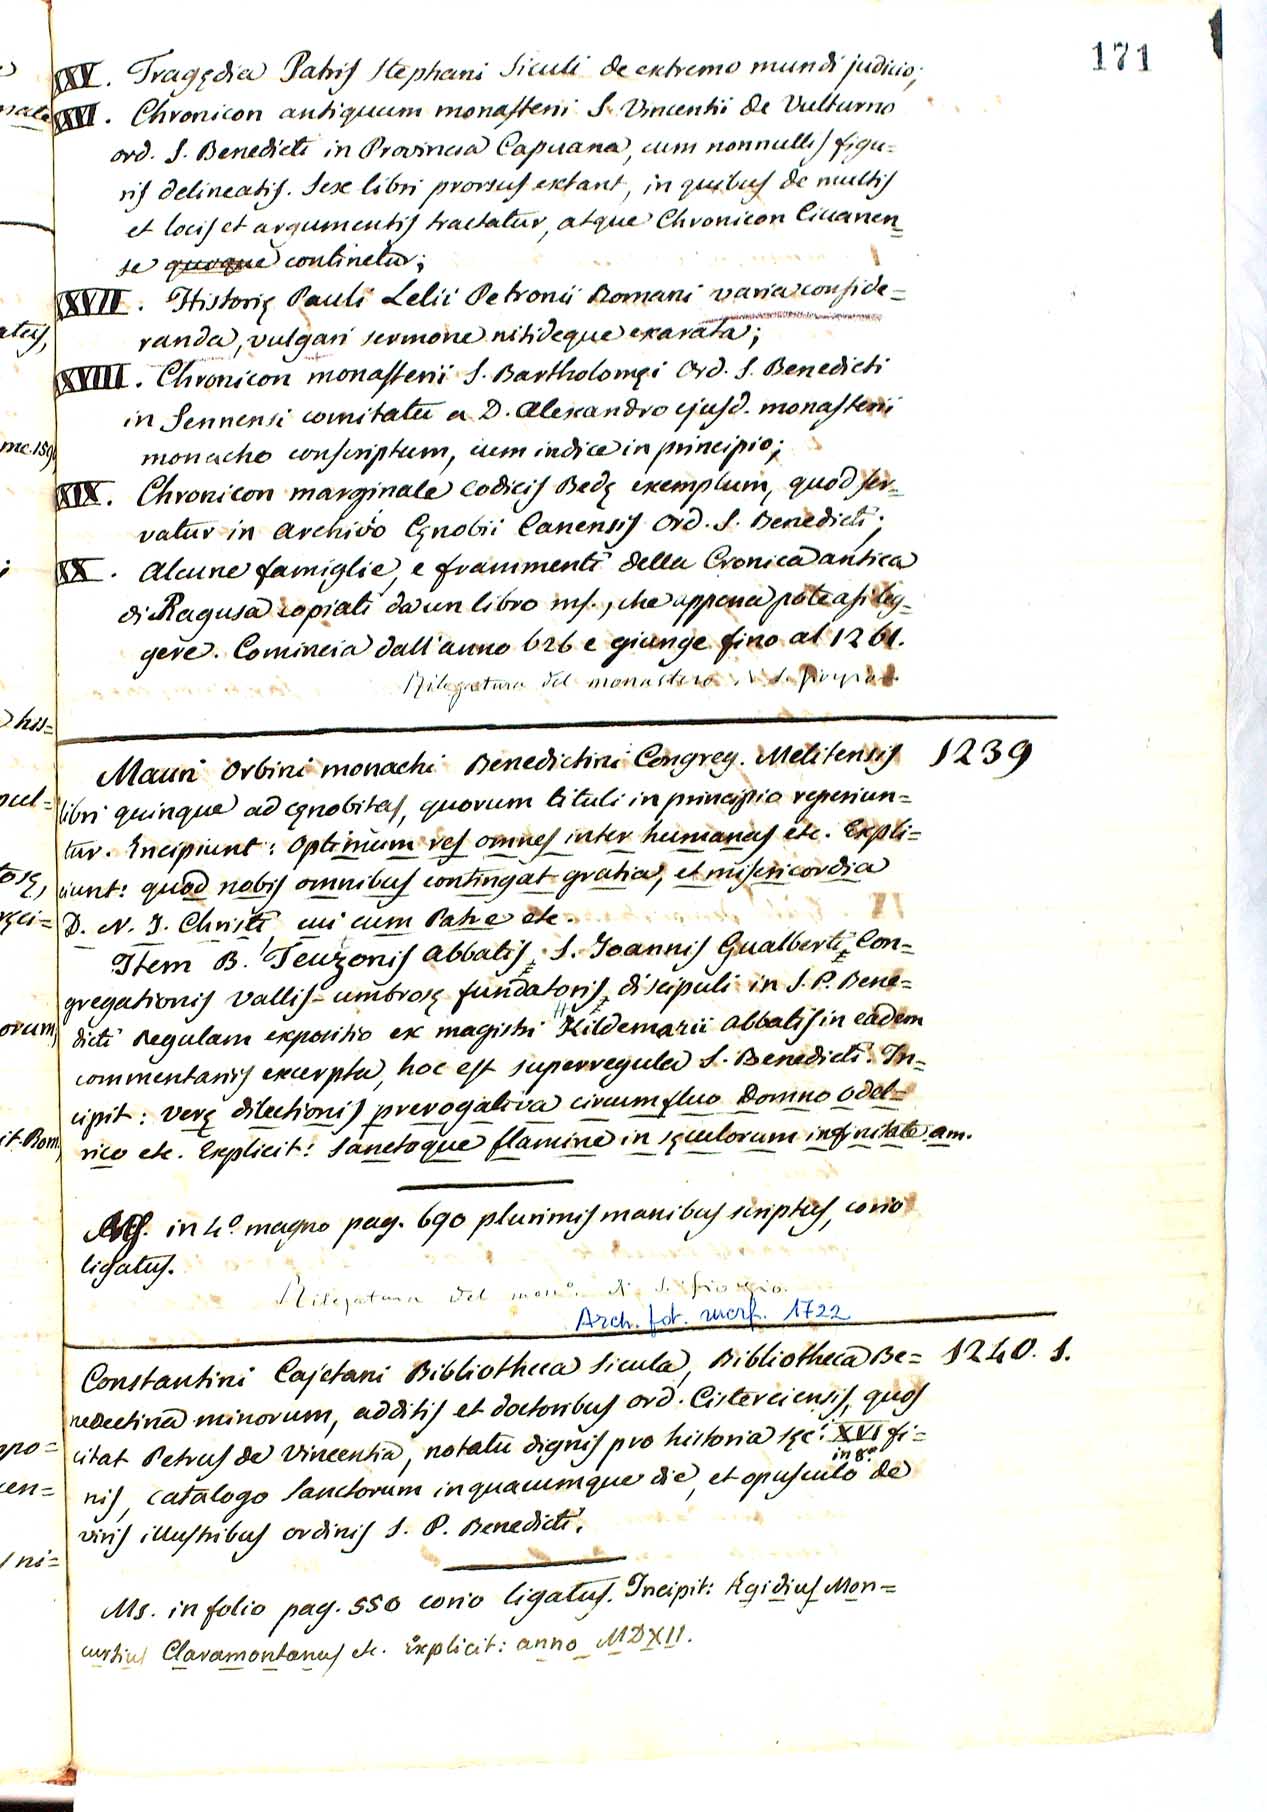 171
XXV. Tragędia Patris Stephani Siculi de extremo mundi judicio;
XXVI. Chronicon antiquum monasterii S. Vincentii de Vulturno
ord. S. Benedicti in Provincia Capuana, cum nonnullis figu=
ris delineatis. Sex libri prorsus extant, in quibus de multis
et locis et argumentis tractatur, atque Chronicon Cicuanen=
se quoque continetur;
XXVII. Historię Pauli Lelii Petronii Romani varia conside=
randa, vulgari sermone nitideque exarata;
XXVIII. Chronicon monasterii S. Bartholomęi Ord. S. Benedicti
in Sennensi comitatu a D. Alexandro ejusd. monasterii
monacho conscriptum, cum indice in principio;
XXIX. Chronicon marginale codicis Bedę exemplum, quod ser=
vatur in Archivio Cęnobii Canensis Ord. S. Benedicti;
XXX. Alcune famiglie, e frammenti della Cronica antica
di Ragusa copiati da un libro ms., che appena poteasi leg=
gere. Comincia dall'anno 626 e giunge fino al 1261.
Rilegatura del monastero di S. Giorgio
Mauri Orbini monachi Benedictini Congreg. Melitensis 1239
libri quinque ad cęnobitas, quorum tituli in principio reperiun=
tur. Incipiunt: Optimum res omnes inter humanas etc. Expli=
ciunt: quod nobis omnibus contingat gratia, et misericordia
D. N. J. Christi cui cum Patre etc.
Item B. Teuzonis Abbatis, S. Joannis Gualberti, Con=
gregationis Vallis-umbrosę fundatoris, discipuli in S. P. Bene=
dicti Regulam expositio ex magistri Hildemarii Abbatis in eadem
commentariis excerpta, hoc est super regula S. Benedicti. In=
cipit: Verę dilectionis prerogativa circumfluo Domno Odel=
rico etc. Explicit: Sanctoque flamine in sęculorum infinitate am.
Ms. in 4.º magno pag. 690 plurimis manibus scriptus, corio
ligatus.
Rilegatura del mon.º di S. Giorgio.
Arch. fot. mcrf. 1722
Constantini Cajetani Bibliotheca Sicula, Bibliotheca Be= 1240. S.
nedectina minorum, additis et doctoribus ord. Cisterciensis, quos
citat Petrus de Vincentia, notatu dignis pro historia sęc. XVI fi=
in 8.º
nis, catalogo Sanctorum in quacumque die, et opusculo de
viris illustribus ordinis S. P. Benedicti.
Ms. in folio pag. 550 corio ligatus. Incipit: Ęgidius Mon=
curtius Claramontanus etc. Explicit: anno MDXII.